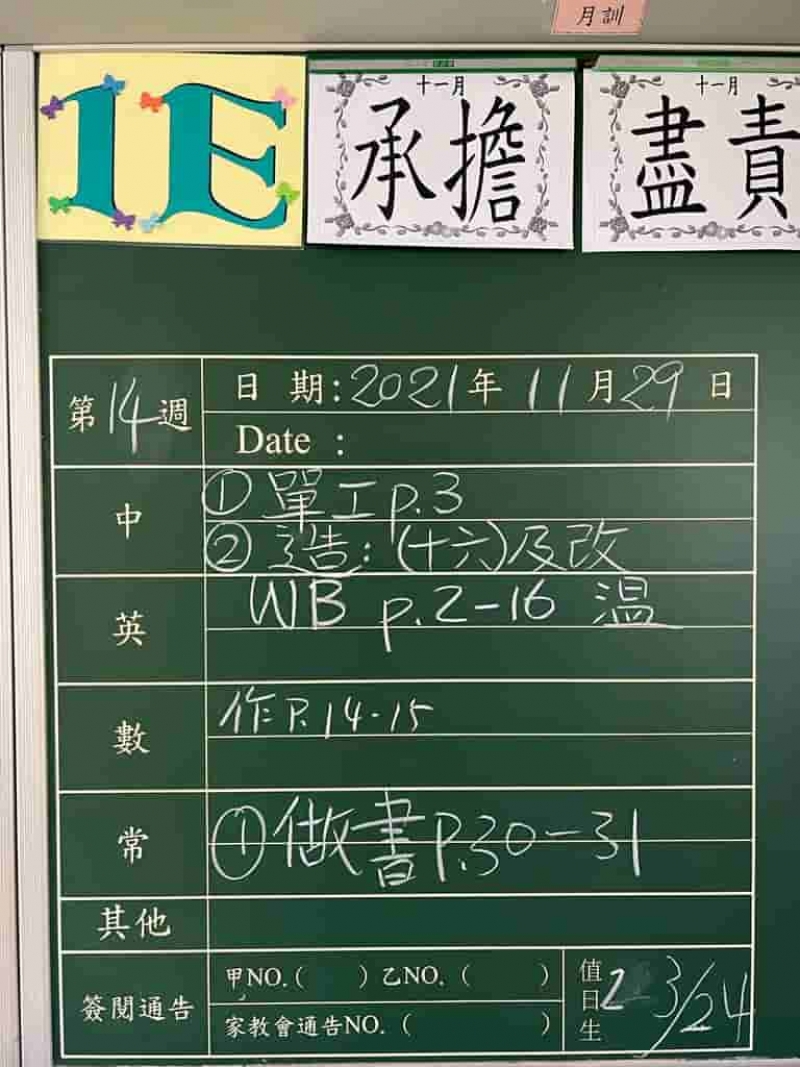 月訓
1E
十一月
承擔
十一月
盡責
第14週
日 期:2021年 11月29日
Date :
中
①單工p.3
②造:(十六)及改
英
WB p.2-16 溫
數
作P.14-15
常
①做書P.30-31
其他
簽閱通告
甲NO.( ) 乙NO.( )
家教會通告NO.( )
值日生
23/24